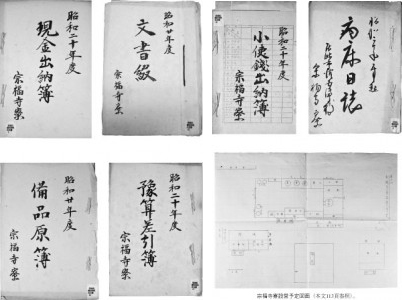 昭和二十年度
現金出納簿
宗福寺寮
昭和廿年度
文書綴
宗福寺寮
昭和二十年度
小使錢出納簿
宗福寺寮
病床日誌
昭和廿年度
備品原簿
宗福寺寮
昭和二十年度
豫算差引簿
宗福寺寮
宗福寺寮設営予定図面（本文113頁参照）。